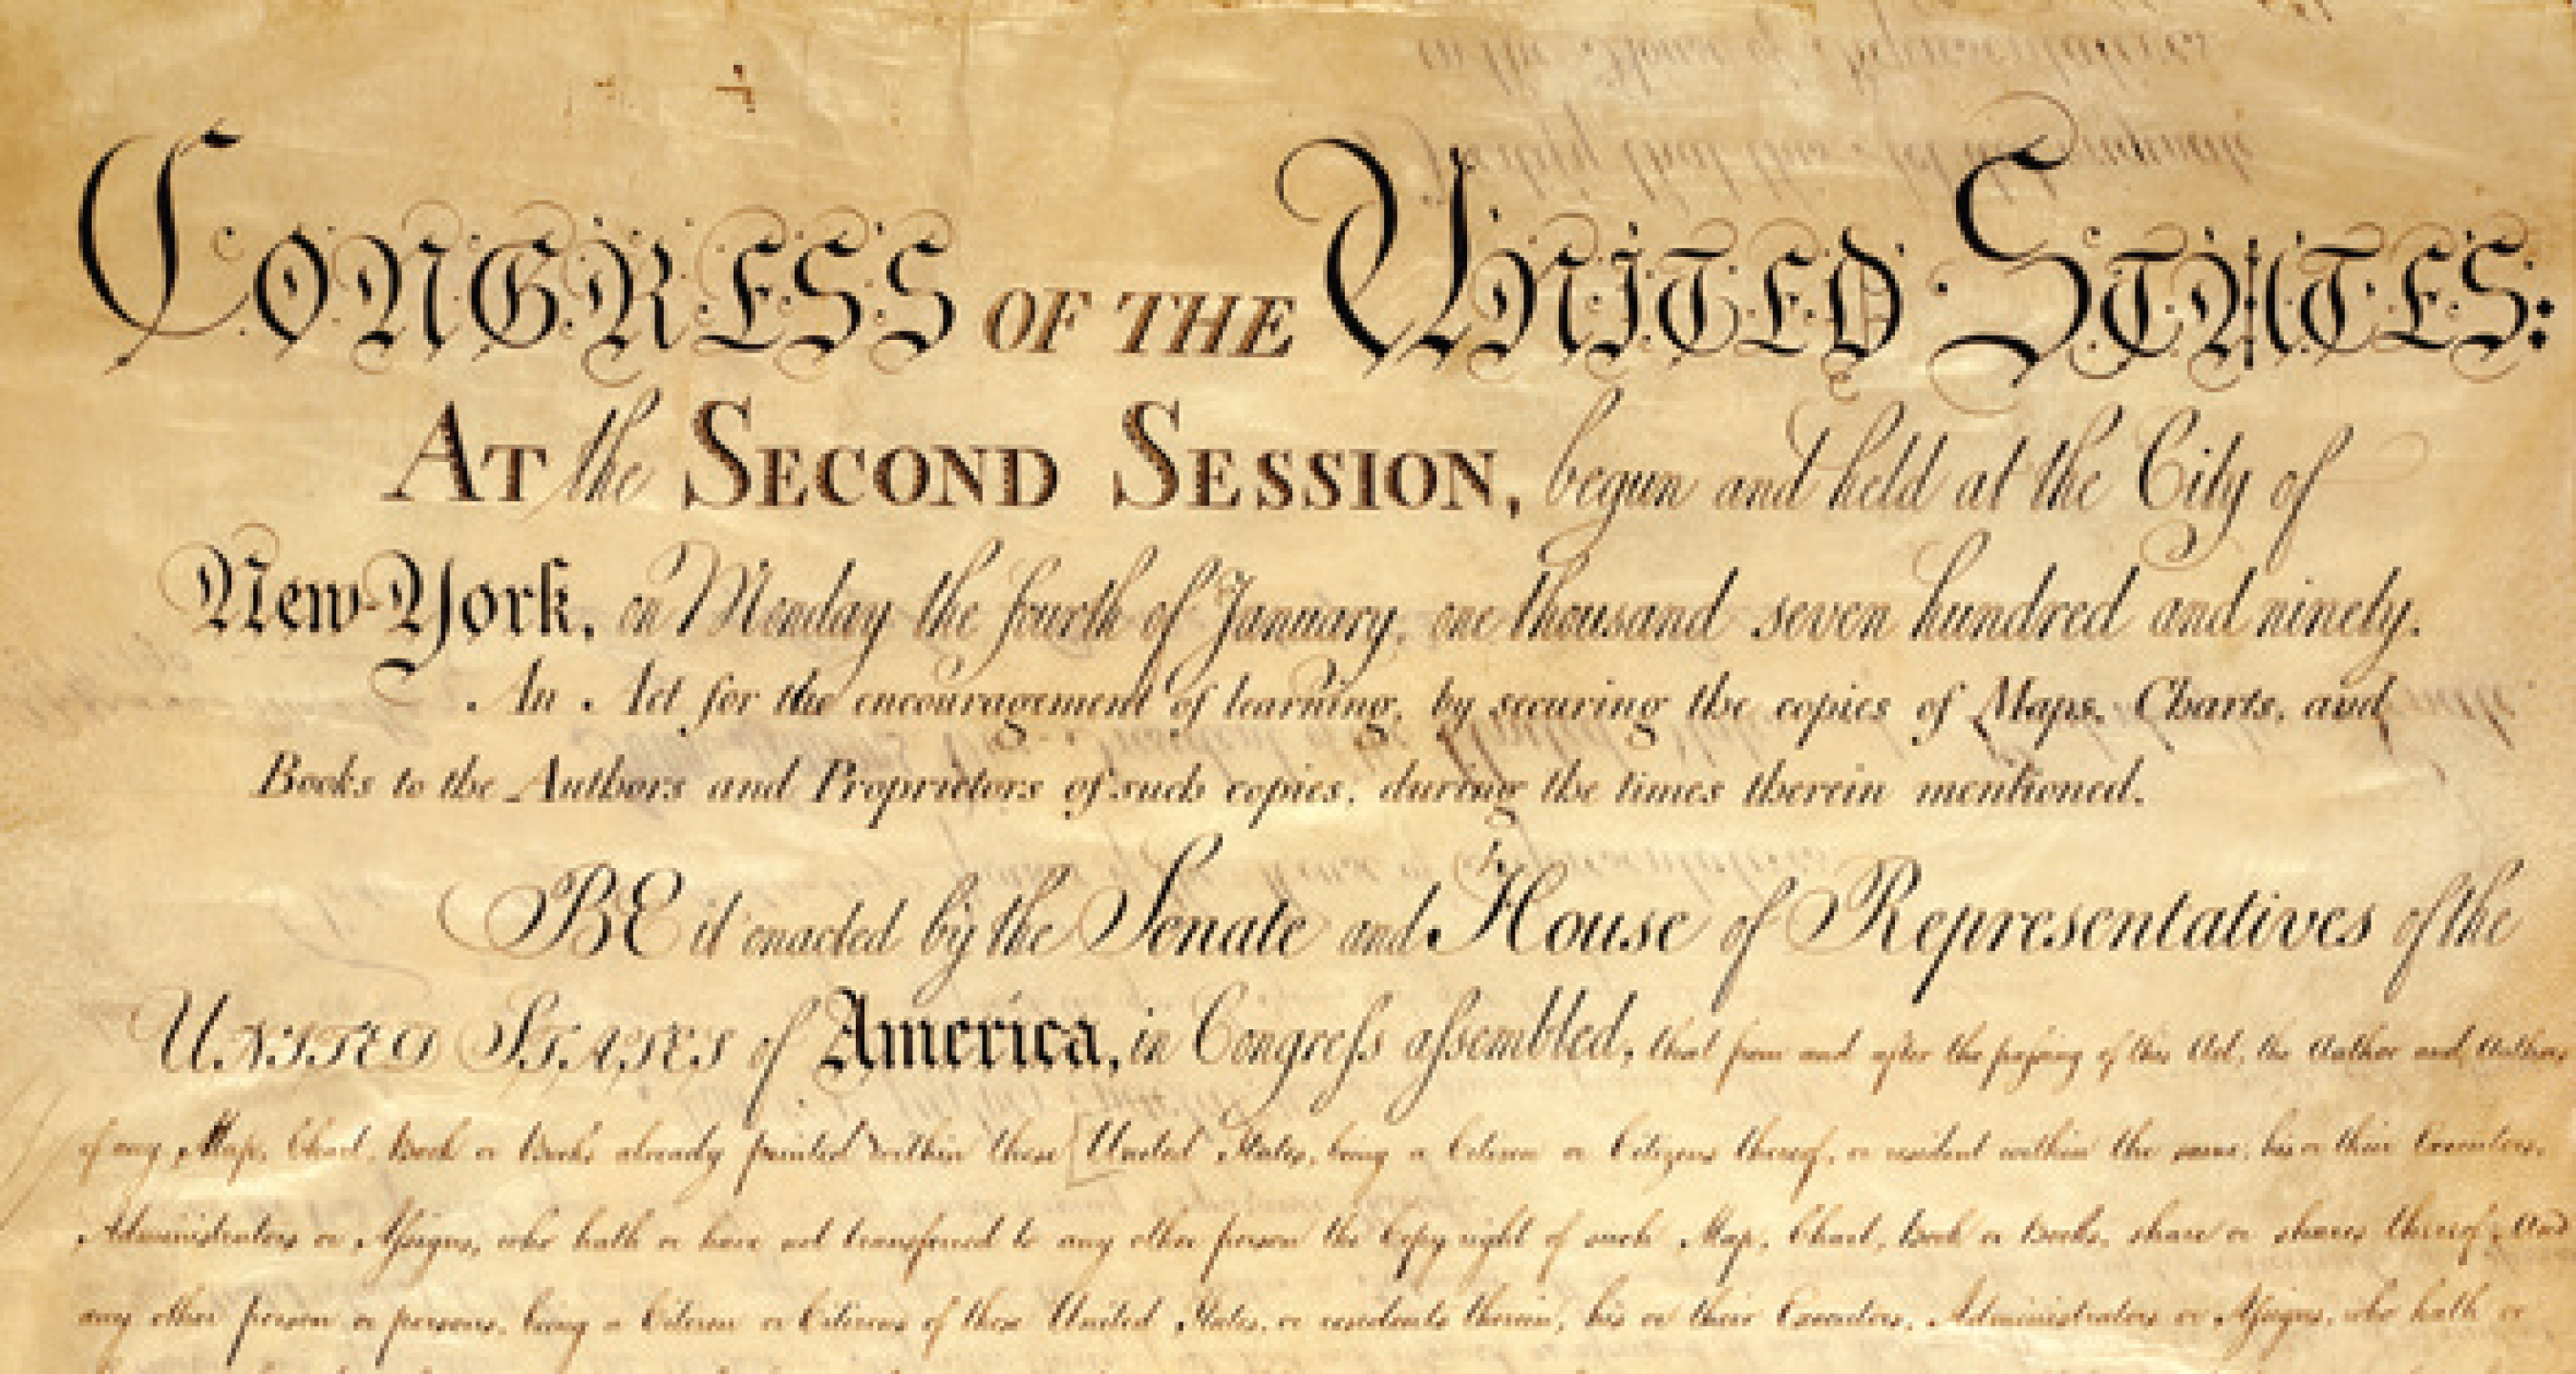 CONGRESS OF THE UNITED STATES:
AT the SECOND SESSION, begun and held at the City of
New-York, on Monday the fourth of January, one thousand seven hundred and ninety.
An Act for the encouragement of learning, by securing the copies of Maps, Charts, and
Books to the Authors and Proprietors of such copies, during the times therein mentioned.
BE it enacted by the Senate and House of Representatives of the
UNITED STATES of America, in Congreſs aſsembled, that from and after the paſsing of this Act, the Author and Authors
of any Map, Chart, Book or Books already printed within these United States, being a Citizen or Citizens thereof, or resident within the same, his or their Executors,
Administrators or Aſsigns, who hath or have not transferred to any other person the Copyright of such Map, Chart, Book or Books, share or shares thereof; And
any other person or persons, being a Citizen or Citizens of these United States, or residents therein, his or their Executors, Administrators or Aſsigns, who hath or